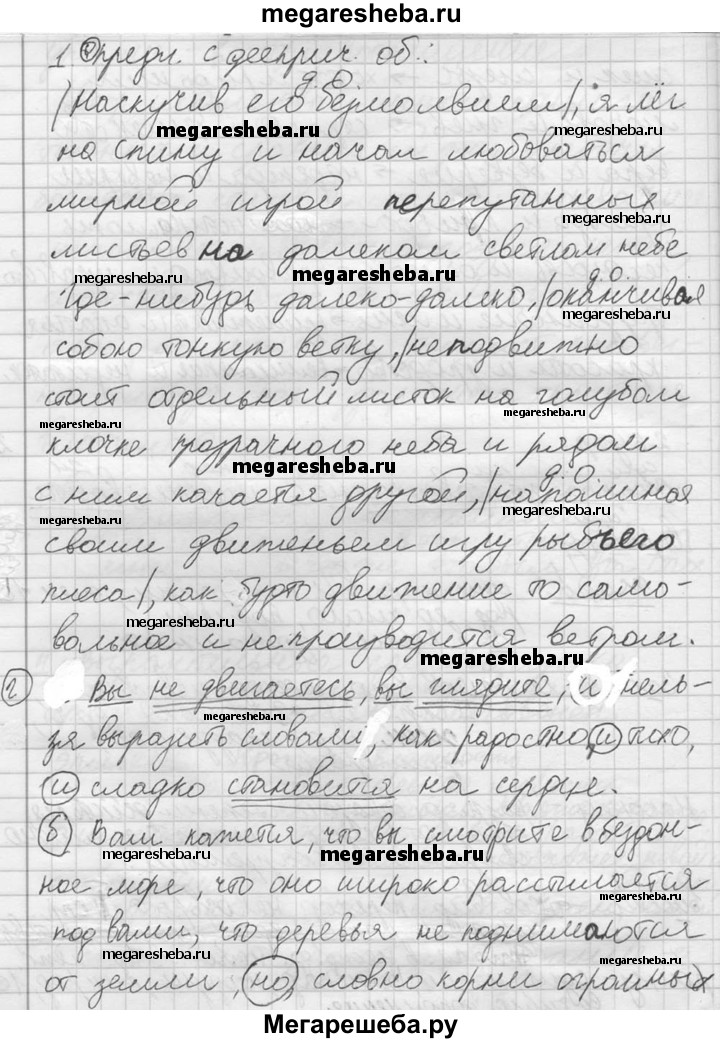 megaresheba.ru
1 Предл. с дееприч. об.:
д о
|Наскучив его безмолвием|, я лёг
megaresheba.ru
megaresheba.ru
на спину и начал любоваться
мирной игрой перепутанных
megaresheba.ru
листьев на далеком светлом небе
megaresheba.ru
megaresheba.ru
д о
Где-нибудь далеко-далеко, |оканчивая
megaresheba.ru
собою тонкую ветку,| неподвижно
стоит отдельный листок на голубом
megaresheba.ru
megaresheba.ru
клочке прозрачного неба и рядом
megaresheba.ru
д о
с ним качается другой, |напоминая
megaresheba.ru
megaresheba.ru
своим движеньем игру рыбьего
плеса|, как будто движение то само-
megaresheba.ru
вольное и не производится ветром.
megaresheba.ru
2) Вы не двигаетесь, вы глядите, и нель-
megaresheba.ru
зя выразить словами, как радостно, и тихо,
и сладко становится на сердце.
megaresheba.ru
б) Вам кажется, что вы смотрите в бездон-
megaresheba.ru
megaresheba.ru
ное море, что оно широко расстилается
megaresheba.ru
под вами, что деревья не поднимаются
megaresheba.ru
megaresheba.ru
от земли, но, словно корни огромных
Мегарешеба.ру